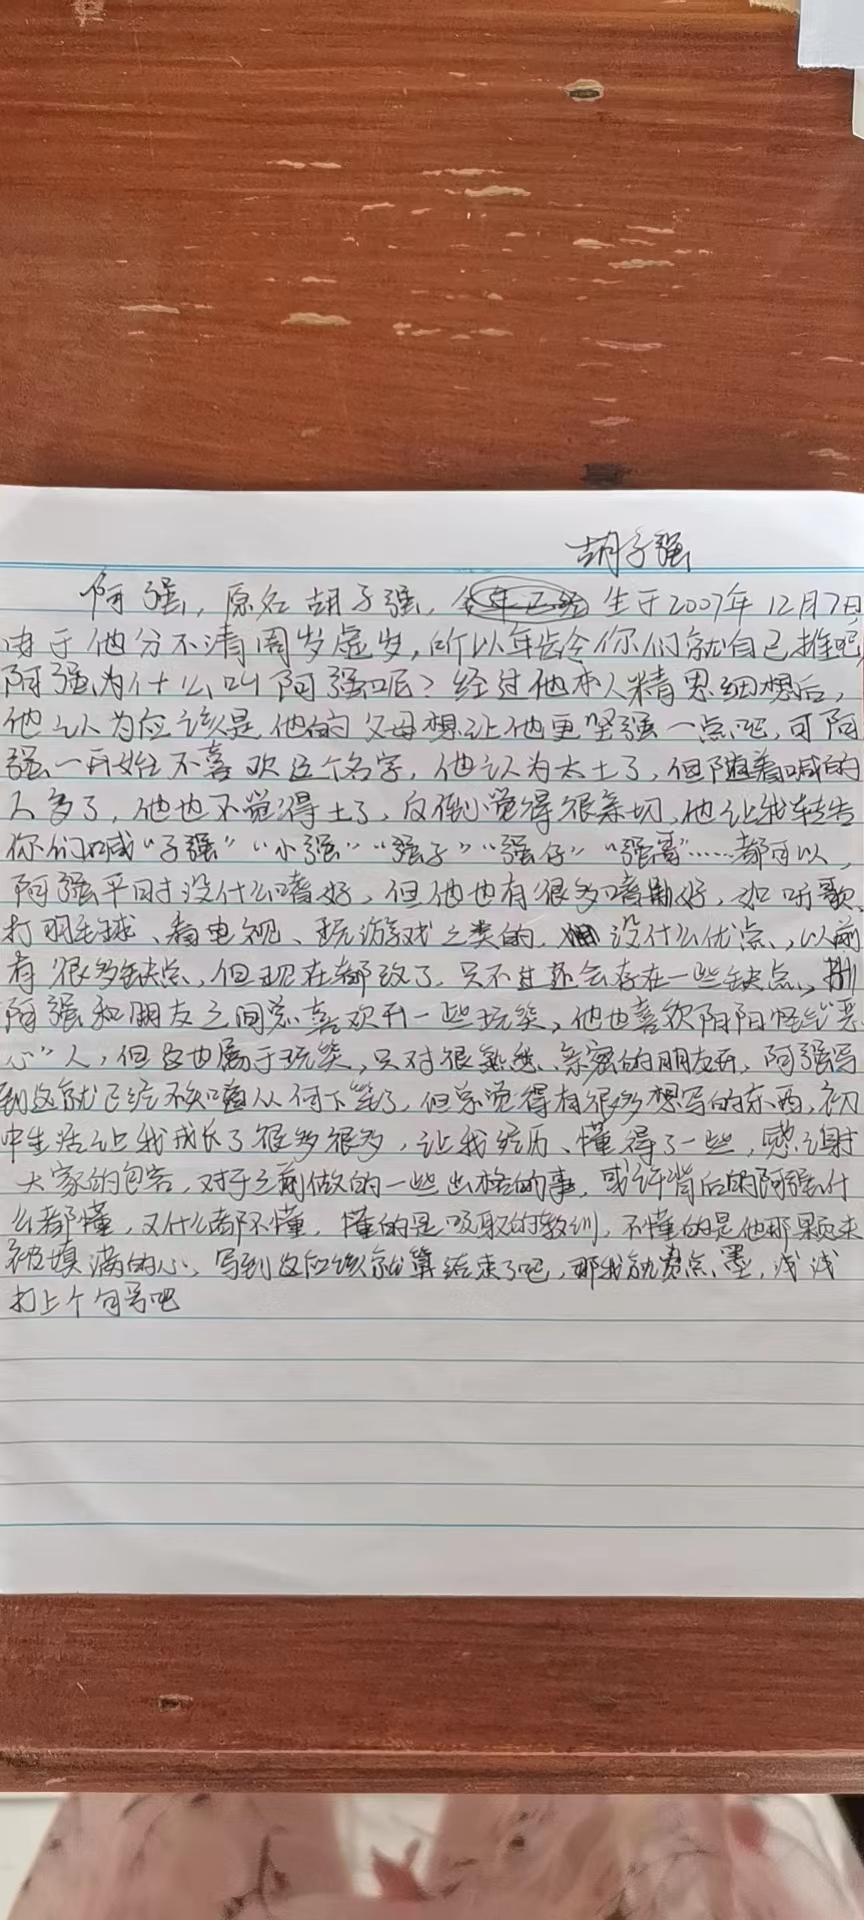 胡子强
阿强，原名胡子强，生于2007年12月7日，
由于他分不清周岁虚岁，所以年龄你们就自己推吧
阿强为什么叫阿强呢？经过他本人精思细想后，
他认为应该是他的父母想让他更坚强一点吧，可阿
强一开始不喜欢这个名字，他认为太土了，但随着喊的
人多了，他也不觉得土了，反倒觉得很亲切，他让我转告
你们喊“子强”“小强”“强子”“强仔”“强哥”……都可以，
阿强平时没什么嗜好，但他也有很多嗜好，如听歌、
打羽毛球、看电视、玩游戏之类的，没什么优点，以前
有很多缺点，但现在都改了，只不过还会存在一些缺点，
阿强和朋友之间总喜欢开一些玩笑，他也喜欢阴阳怪气“恶
心”人，但这也属于玩笑，只对很熟悉、亲密的朋友开，阿强写
到这就已经不知道从何下笔了，但总觉得有很多想写的东西，初
中生活让我成长了很多很多，让我经历、懂得了一些，感谢
大家的包容，对于之前做的一些出格的事，或许背后的阿强什
么都懂，又什么都不懂，懂的是吸取的教训，不懂的是他那颗未
被填满的心，写到这应该就算结束了吧，那我就费点墨，浅浅
打上个句号吧